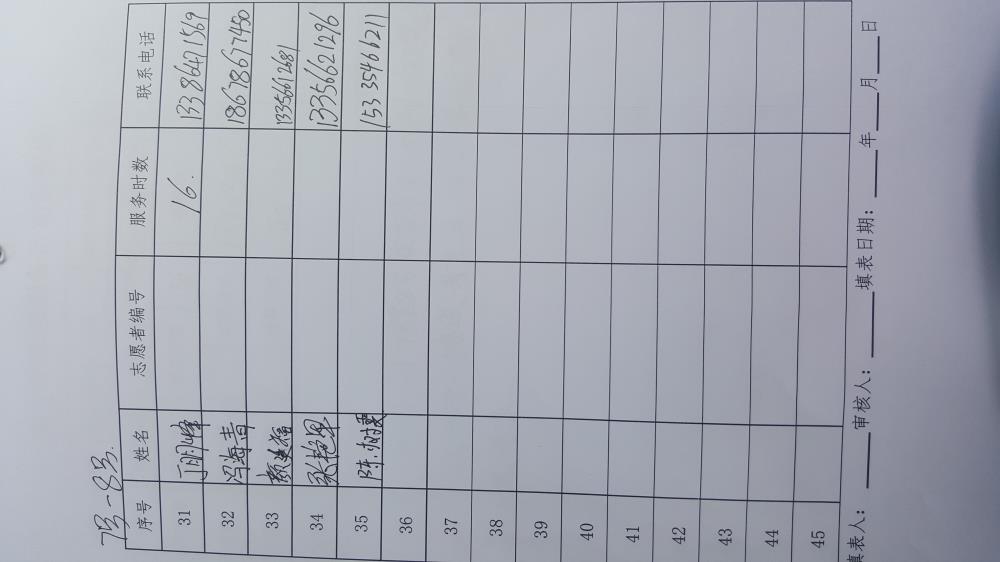 7号-8号.
序号 姓名 志愿者编号 服务时数 联系电话
31 丁明峰 16. 13386471569
32 冯海青 18678677450
33 13356612681
34 张艳翠 13356621296
35 陈 15335466211
36
37
38
39
40
41
42
43
44
45
填表人： 审核人： 填表日期： 年 月 日